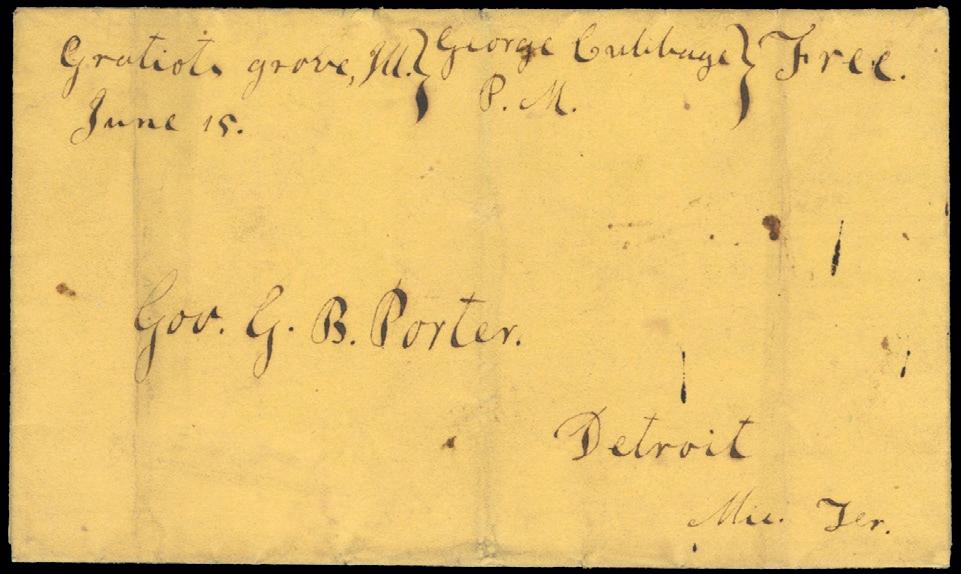 Gratiots grove, Ill. } George Cubbage } Free.
June 15. P. M.
Gov. G. B. Porter.
Detroit
Mic. Ter.